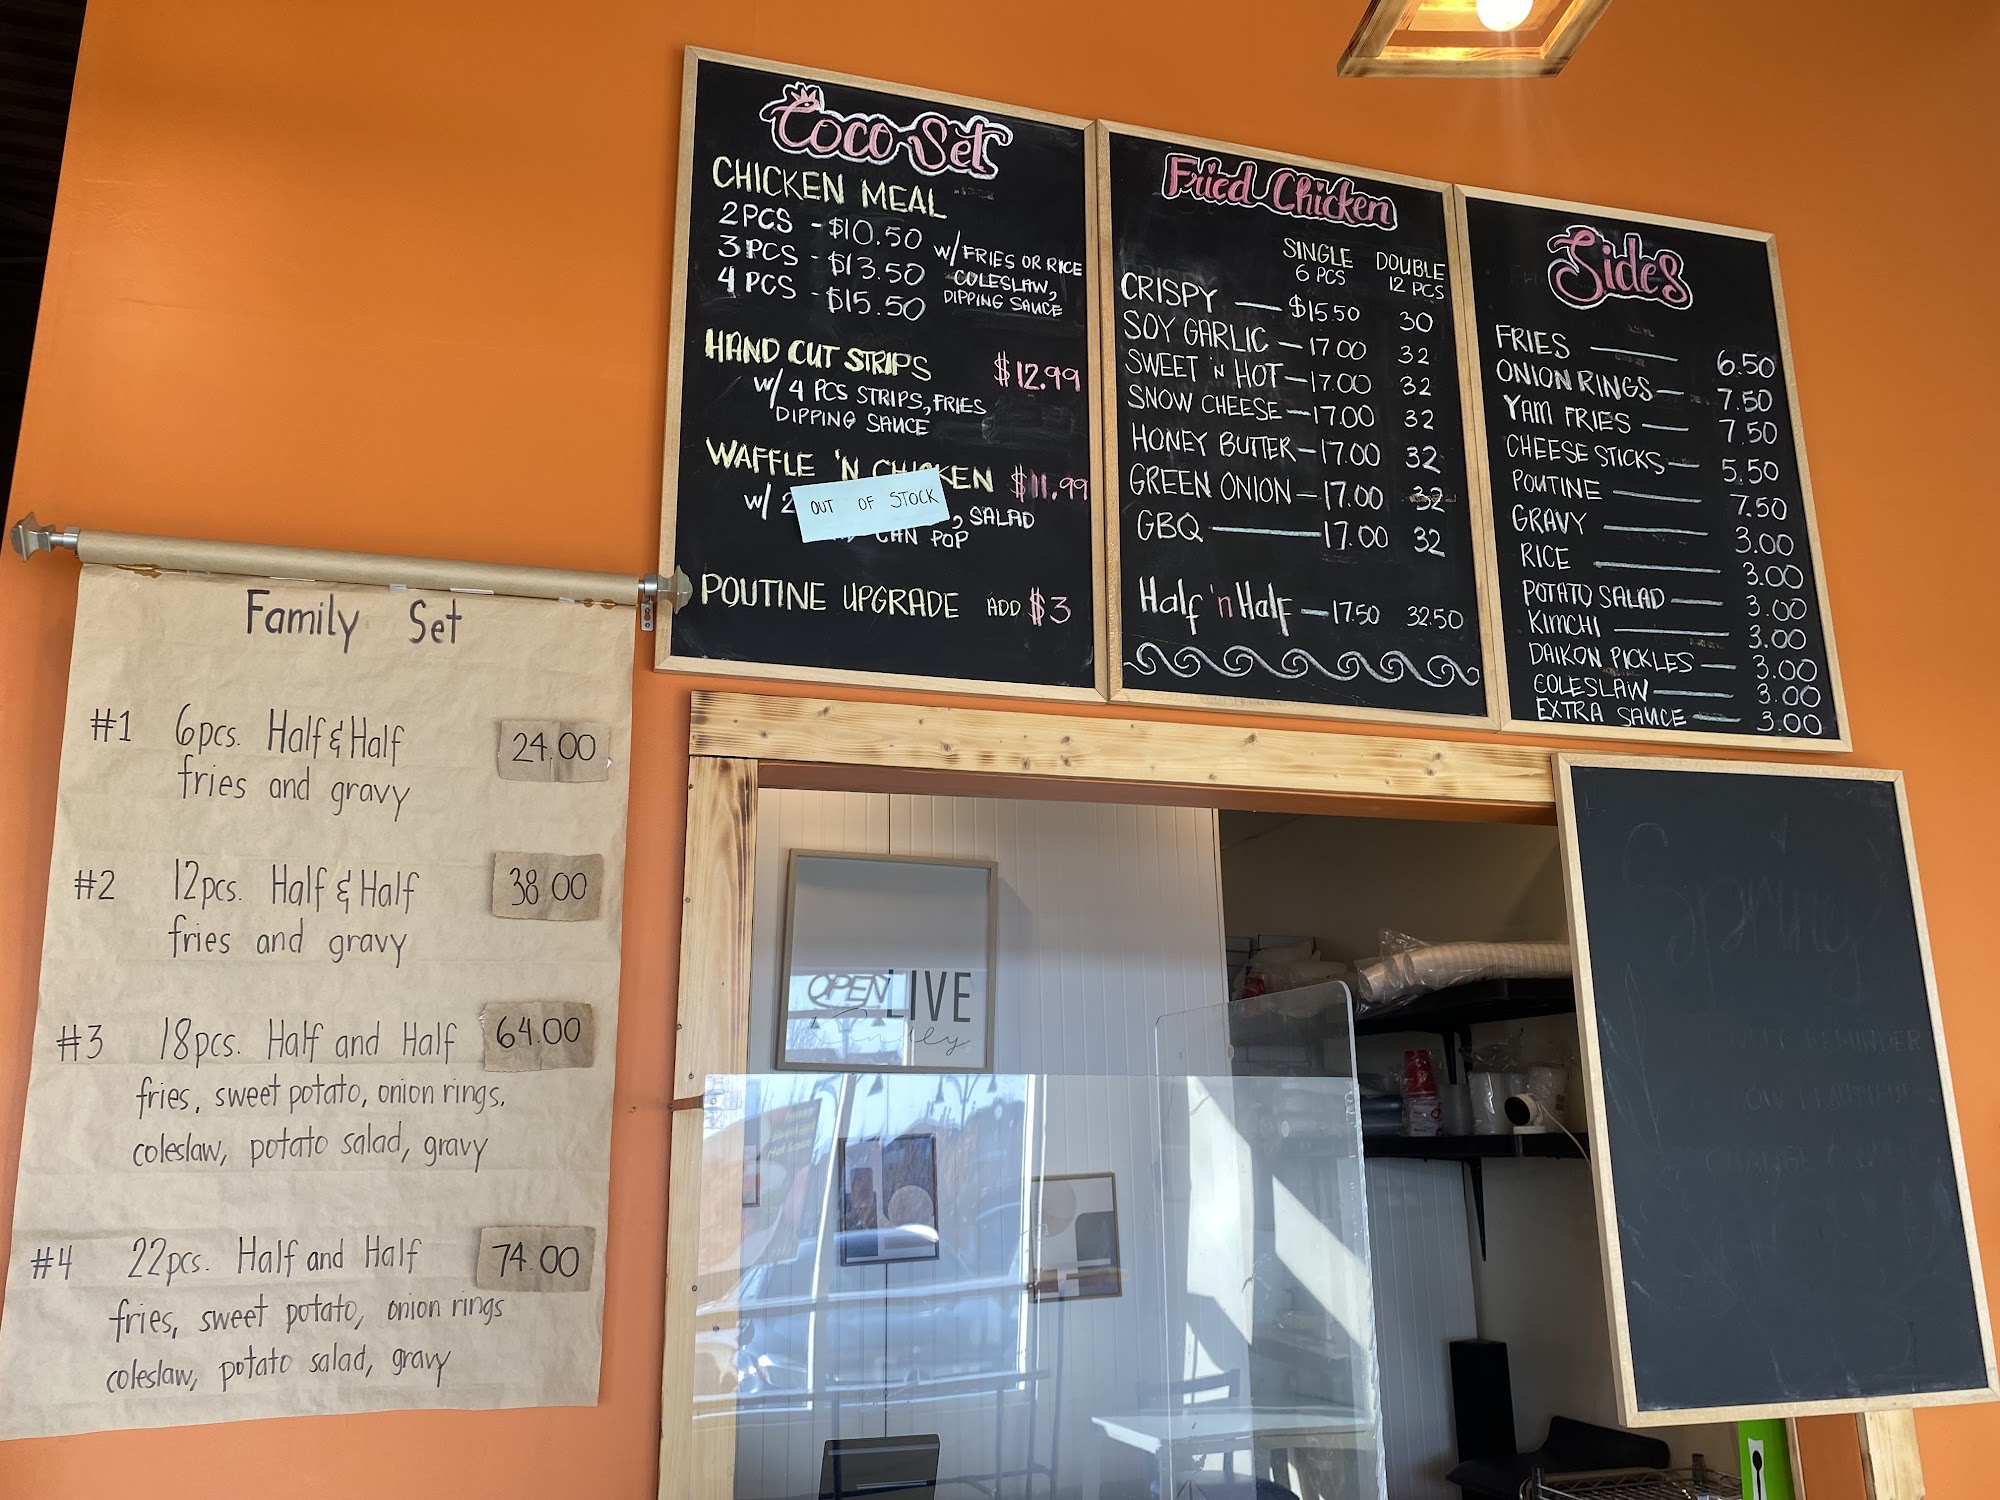 Coco Set
CHICKEN MEAL
2PCS - $10.50
3PCS - $13.50
4 PCS - $15.50
w/ FRIES OR RICE
COLESLAW,
DIPPING SAUCE
HAND CUT STRIPS $12.99
w/ 4 PCS STRIPS, FRIES
DIPPING SAUCE
WAFFLE 'N CHICKEN $11.99
w/ 2 , SALAD
CAN POP
OUT OF STOCK
POUTINE UPGRADE ADD $3
Fried Chicken
SINGLE DOUBLE
6 PCS 12 PCS
CRISPY — $15.50 30
SOY GARLIC — 17.00 32
SWEET 'N HOT — 17.00 32
SNOW CHEESE — 17.00 32
HONEY BUTTER — 17.00 32
GREEN ONION — 17.00 32
GBQ — 17.00 32
Half 'n Half — 17.50 32.50
Sides
FRIES — 6.50
ONION RINGS — 7.50
YAM FRIES — 7.50
CHEESE STICKS — 5.50
POUTINE — 7.50
GRAVY — 3.00
RICE — 3.00
POTATO SALAD — 3.00
KIMCHI — 3.00
DAIKON PICKLES — 3.00
COLESLAW — 3.00
EXTRA SAUCE — 3.00
Family Set
#1 6pcs. Half & Half 24.00
fries and gravy
#2 12pcs. Half & Half 38.00
fries and gravy
#3 18pcs. Half and Half 64.00
fries, sweet potato, onion rings,
coleslaw, potato salad, gravy
#4 22pcs. Half and Half 74.00
fries, sweet potato, onion rings
coleslaw, potato salad, gravy
OPEN
LIVE
Spring
REMINDER